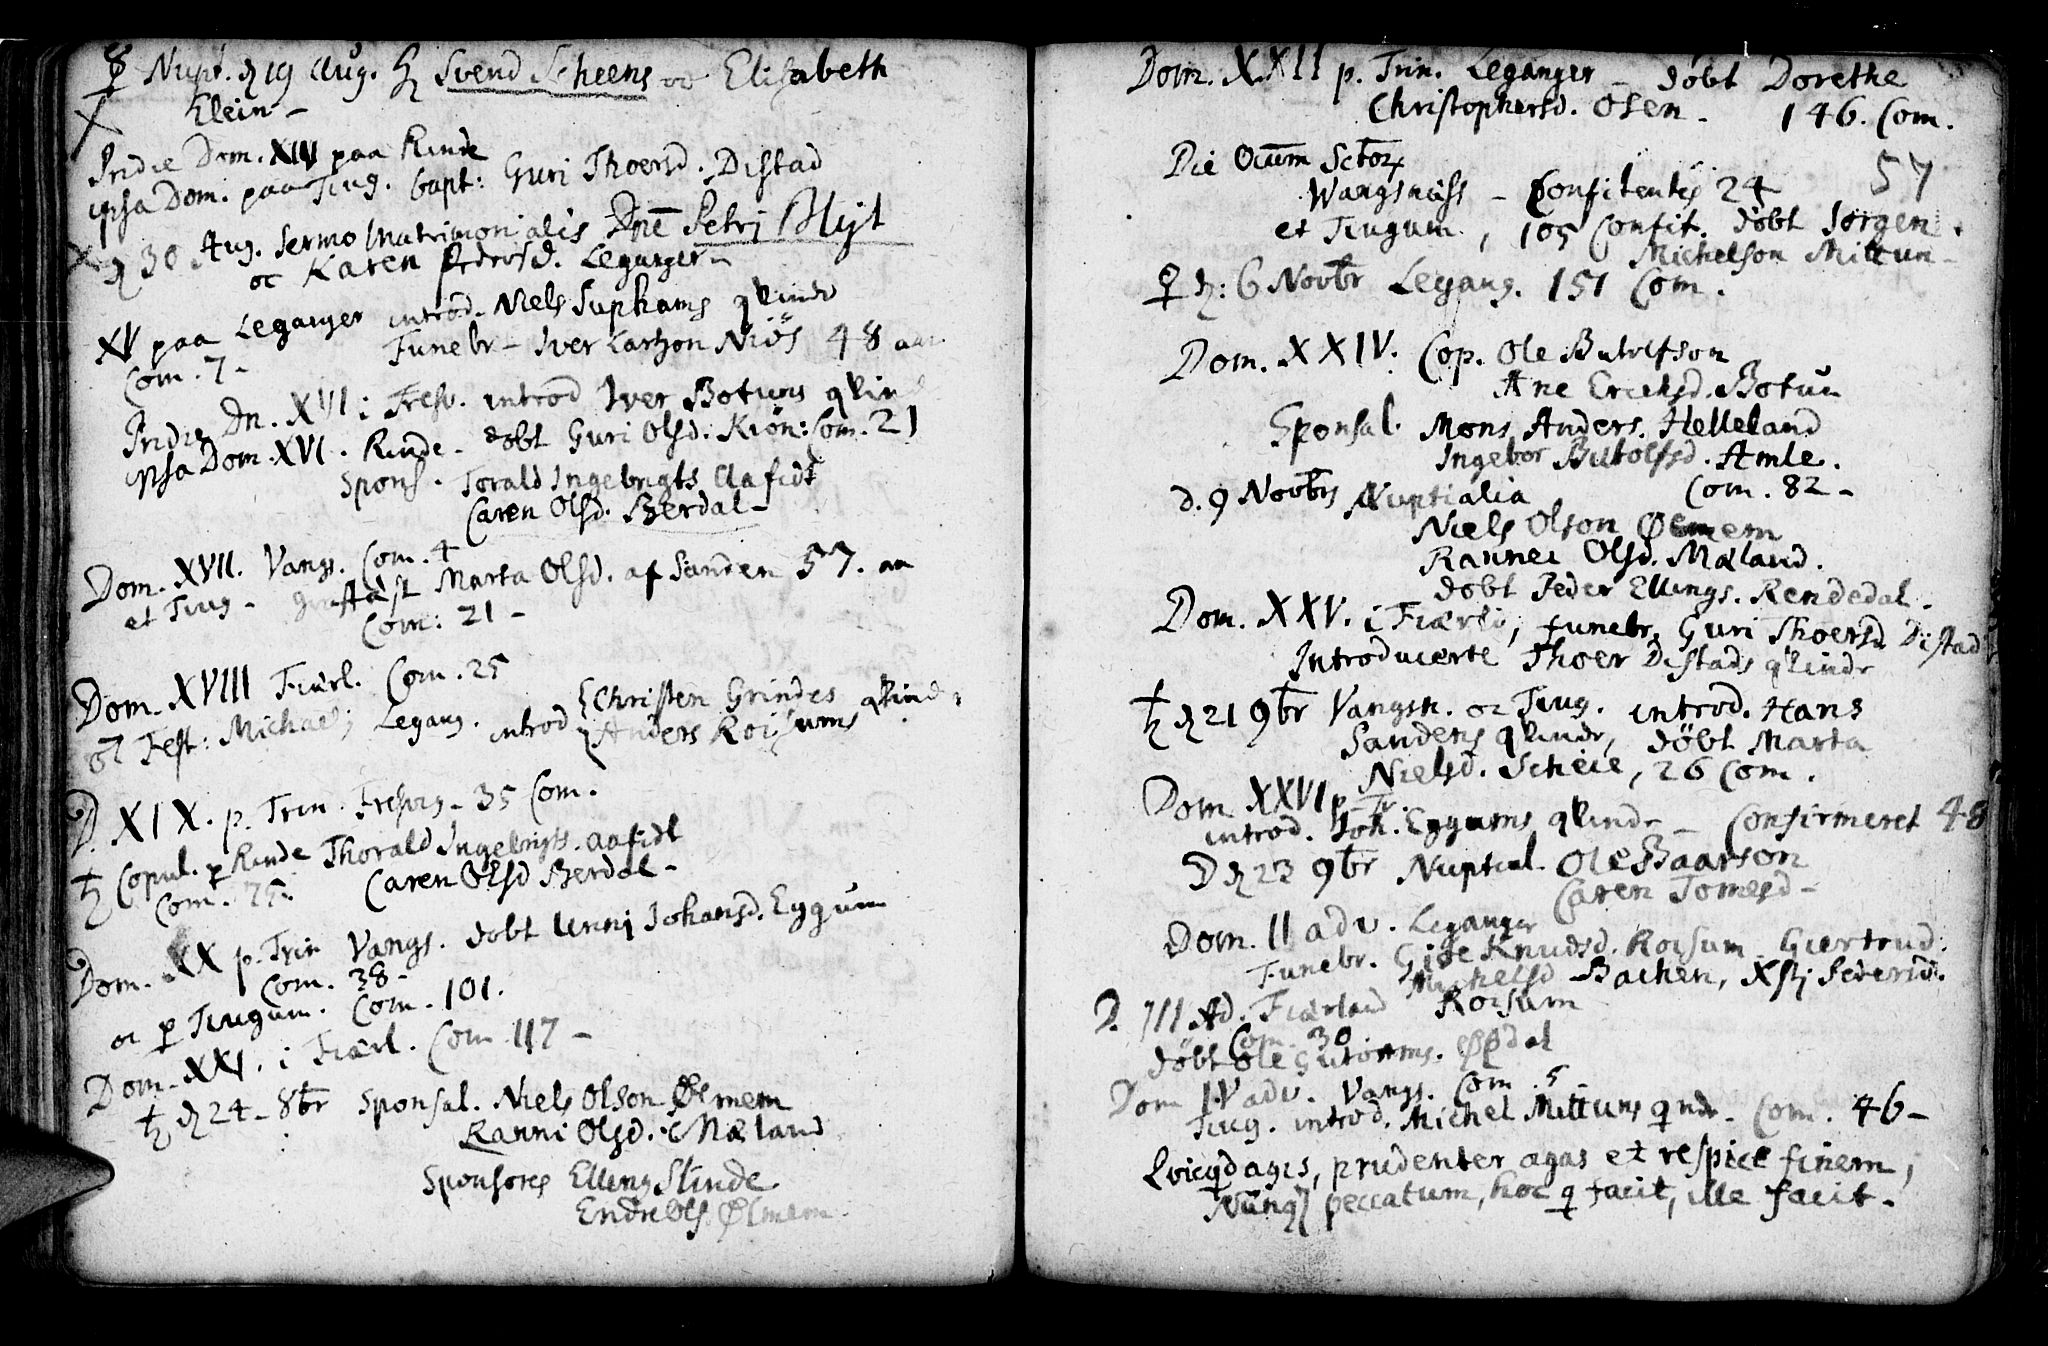 ☿ Nupt. d 19 Aug. H Svend Scheens oc Elisabeth
X Klein –
Pridie Dom. XIV paa Rinde
ipsa Dom. paa Tiug. bapt: Guri Thoersd. Distad
X d 30 Aug. Sermo Matrimonialis Dne Petri Blijt
oc Karen Pedersd. Leganger –
XV paa Leganger introd. Niels Suphams qvinde
Com. 7 – Funebr – Iver Larsson Niøs 48 aar
Pridie Dn. XVI i Fresv. introd Iver Botuns qvin
ipsa Dom. XVI. Rinde – døbt Guri Olsd. Kiøn: Com. 21
Spons. Torald Ingebrigts Aafidt
Caren Olsd. Berdal –
Dom. XVII. Vangs. Com. 4
et Tiug – Marta Olsd. af Sanden 57. aa
Com: 21 –
Dom. XVIII Fiærl. Com. 25
oc Fest: Michaelis Legang. introd { Christen Grindes qvind:
Anders Roisums
D. XIX. p. Trin. Fresvig – 35 Com.
♄ Copul. p Rinde Thorald Ingebrigts. Aafidt
Com. 75. Caren Olsd Berdal –
Dom. XX p. Trin Vangs. døbt Unni Johansd. Eggum
Com. 38 –
oc p Tiugum. Com. 101.
Dom – XXI. i Fiærl. Com 117 –
♄ d 24 – 8br Sponsal. Niels Olson Ølmem
Ranni Olsd. Mæland
Sponsores Elling Slinde
Endre Ols. Ølmem
Dom. XXII p. Trin. Leganger – døbt Dorethe
Christophersd. Osen – 146. Com.
Die Oium Sctor
Wangsnæss – Confitentes 24 57
et Tiugum, 105 Confit. døbt Jørgen
Michelson Mittun –
♀ d: 6 Novbr Legang. 151 Com.
Dom. XXIV. Cop. Ole Butolfson
Ane Ericksd. Botun
Sponsal. Mons Anders. Helleland
Ingebor Butolfsd. Amle.
d. 9 Novbris Nuptialia Com. 82 –
Niels Olson Ølmem
Rannei Olsd. Mæland.
døbt Peder Ellings. Rendedal –
Dom. XXV. i Fiærl, funebr. Guri Thoersd Distad
Introducerte Thoer Distads qvinde
♄ d 21 9br Vangsn. oc Tiug. introd. Hans
Sandens qvinde, døbt Marta
Nielsd. Scheie, 26 Com.
Dom XXVI p Tr.
introd. Joh. Eggums qvinde – Confirmeret 48
D d 23 9br Nuptial. Ole Baarson
Caren Tomesd –
Dom. II adv. Leganger
Funebr. Giøe Knudsd. Roisum – Giertrud
Michelsd Bachen, Xstj Pedersd.
D. III Ad. Fiærland Roisum
Com. 30
døbt Ole Guttorms. Øpdal
Dom IV adv. Vangs. Com. 5
Tiug. introd. Michel Mittuns qnde – Com. 46 –
Qvicqd agis, prudenter agas et respice finem,
Nunq peccatum, hoc q facit, ille facit –